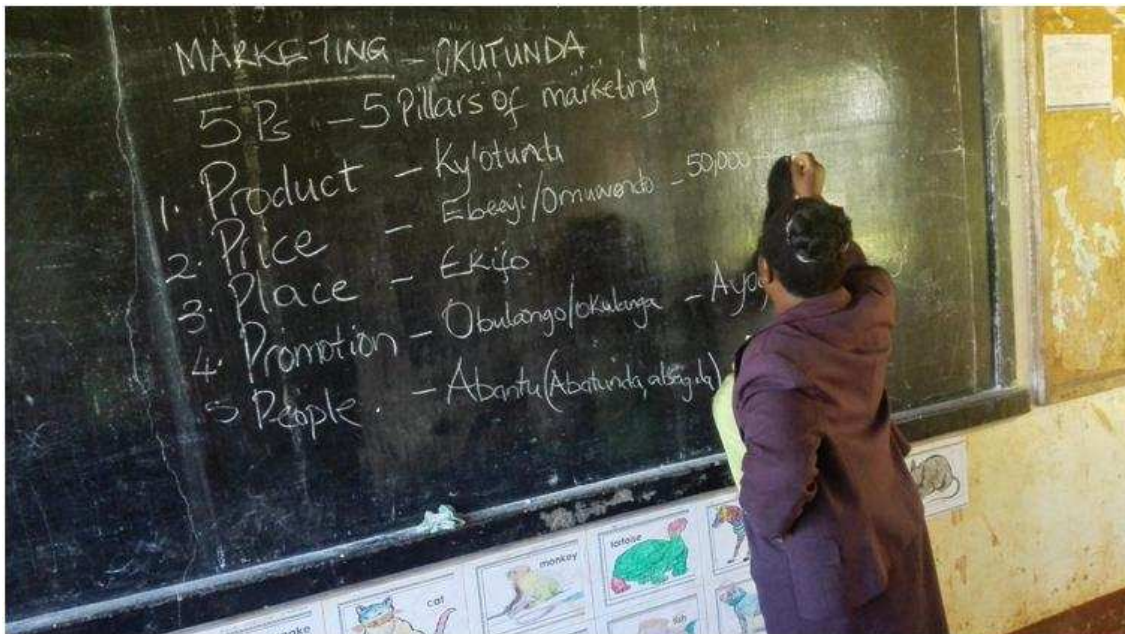 MARKETING - OKUTUNDA
5 Ps - 5 Pillars of marketing
1. Product - Ky'otunda
2. Price - Ebeeyi/Omuwendo - 50,000
3. Place - Ekifo
4. Promotion - Obulango/okulanga -
5 People. - Abantu (Abatunda, abagula)
cat
monkey
tortoise
fish